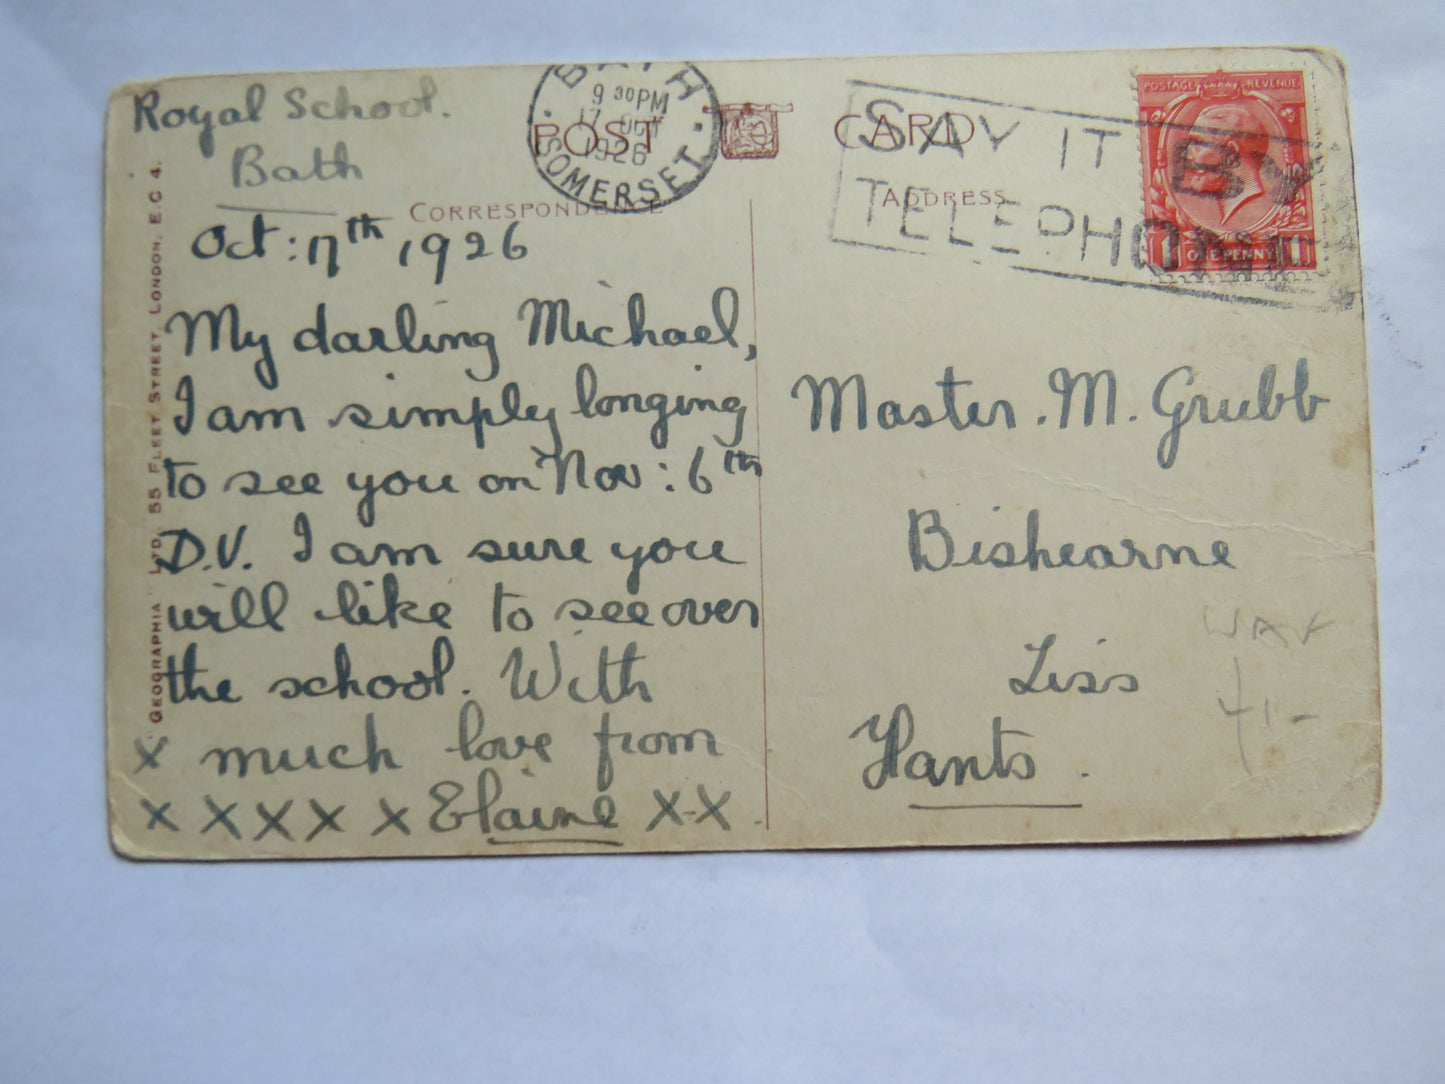 Royal School.
Bath
Oct: 17th, 1926
My darling Michael,
I am simply longing
to see you on Nov: 6th
D.V. I am sure you
will like to see over
the school. With
x much love from
x x x x x Elaine x-x.
"GEOGRAPHIA" LTD. 55 FLEET STREET, LONDON, E.C 4.
POST CARD
CORRESPONDENCE
ADDRESS
BATH
9 30 PM
17 OCT
1926
SOMERSET
SAY IT BY
TELEPHONE
POSTAGE REVENUE
1 ONE PENNY 1
Master. M. Grubb
Bishearne
Liss
Hants.